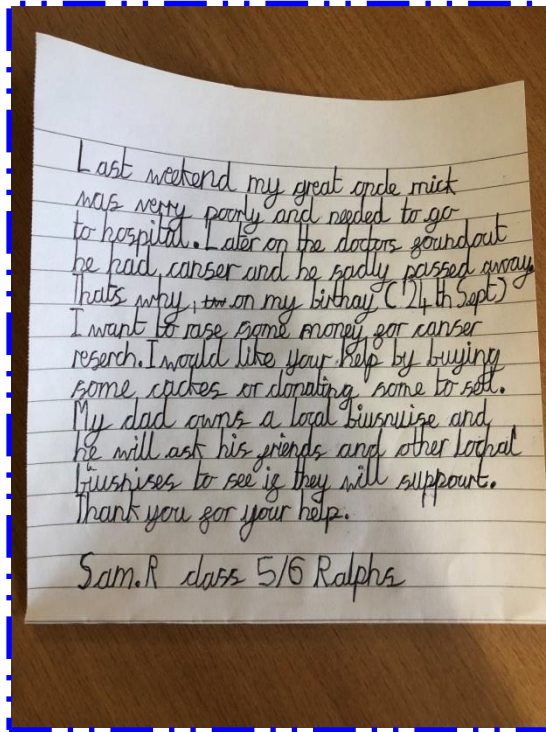 Last weekend my great oncle mick
was verry poorly and needed to go
to hospital. Later on the doctors foundout
he had canser and he sadly passed away.
Thats why, on my birthay (24th Sept)
I want to rase some money for canser
reserch. I would like your help by buying
some cackes or donating some to sell.
My dad owns a local biusnuise and
he will ask his friends and other lochal
biusnises to see if they will suppourt.
Thank you for your help.
Sam.R class 5/6 Ralphs